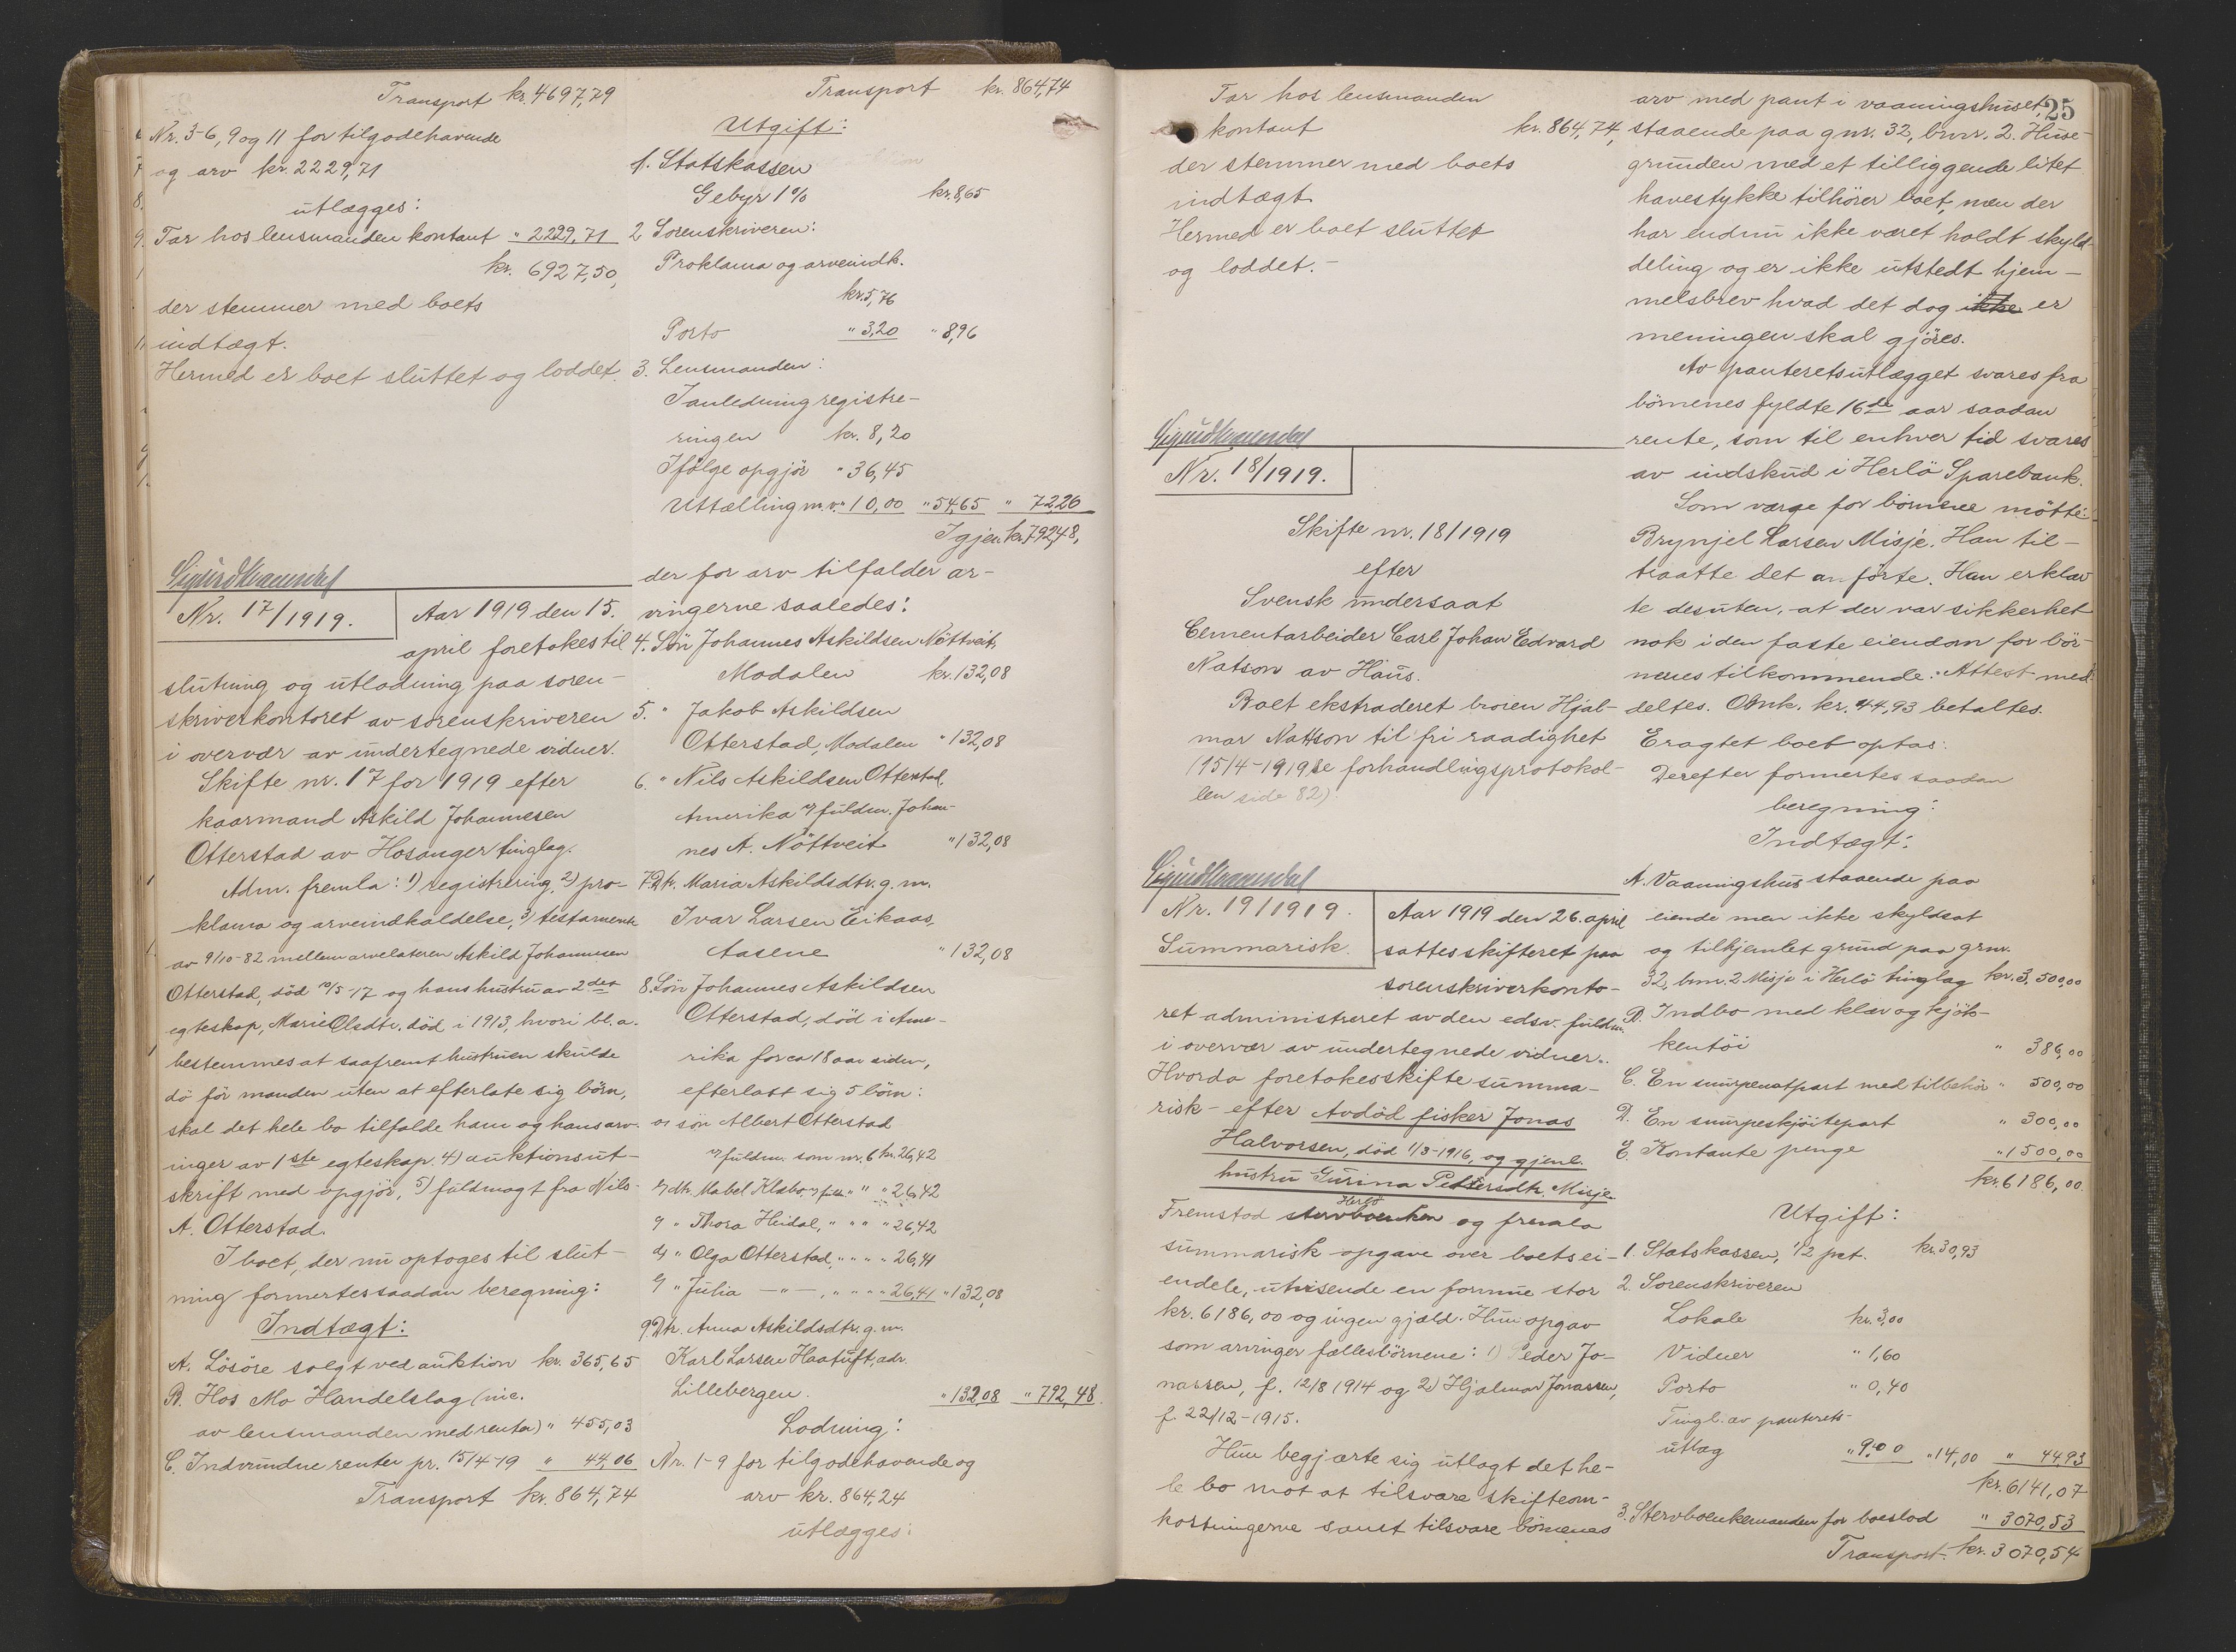 Transport kr. 4697,79
Nr. 3-6, 9 og 11 for tilgodehavende
og arv kr. 2229,71
utlægges:
Tar hos lensmanden kontant " 2229,71
kr. 6927,50,
der stemmer med boets
indtægt.
Hermed er boet sluttet og loddet.
Nr. 17/1919.
Aar 1919 den 15.
april foretokes til
slutning og utlodning paa soren-
skriverkontoret av sorenskriveren
i overvær av undertegnede vidner.
Skifte nr. 17 for 1919 efter
kaarmand Askild Johannesen
Otterstad av Hosanger tinglag.
Adm. fremla: 1) registrering, 2) pro-
klama og arveindkaldelse, 3) testament
av 9/10-82 mellem arvelateren Askild Johannesen
Otterstad, død 10/5-17 og hans hustru av 2det
egteskap, Marie Olsdtr. död i 1913, hvori bl. a.
bestemmes at saafremt hustruen skulde
dö för manden uten at efterlate sig börn,
skal det hele bo tilfalde ham og hans arv-
inger av 1ste egteskap. 4) auktionsut-
skrift med opgjör, 5) fuldmagt fra Nils
A. Otterstad.
I boet, der nu optoges til slut-
ning formertes saadan beregning:
Indtægt:
A. Lösöre solgt ved auktion kr. 365,65
B. Hos Mo Handelslag (inc.
av lensmanden med renter) " 455,03
C. Indvundne renter pr. 15/4-19 " 44,06
Transport kr. 864,74
Transport kr. 864,74
Utgift:
1. Statskassen
Gebyr 1% kr. 8,65
2 Sorenskriveren:
Proklama og arveindk.
kr. 5,76
Porto " 3,20 " 8,96
3. Lensmanden:
I anledning registre-
ringen kr. 8,20
Ifölge opgjör " 36,45
Uttælling m.v. " 10,00 " 54,65 " 72,26
Igjen kr. 792,48,
der for arv tilfalder ar-
vingerne saaledes:
4. Sön Johannes Askildsen Nöttveit,
Modalen kr. 132,08
5. " Jakob Askildsen
Otterstad, Modalen " 132,08
6. " Nils Askildsen Otterstad,
Amerika v/ fuldm. Johan-
nes A. Nöttveit " 132,08
7. Dtr. Maria Askildsdtr. g. m.
Ivar Larsen Eikaas,
Aasene " 132,08
8. Sön Johannes Askildsen
Otterstad, död i Ame-
rika for ca 18 aar siden,
efterlatt sig 5 börn:
a) sön Albert Otterstad
v/ fuldm. som nr. 6 kr. 26,42
b) dtr. Mabel Klæbo, v/ fuldm. " " " 26,42
c) " Thora Heidal, " " " 26,42
d) " Olga Otterstad, " " " " 26,41
e) " Julia — " —, " " " " 26,41 " 132,08
9. Dtr. Anna Askildsdtr. g. m.
Karl Larsen Haatuft, adr.
Lillebergen. " 132,08 " 792,48.
Lodning:
Nr. 1-9 for tilgodehavende og
arv kr. 864,24
utlægges:
25
Tar hos lensmanden
kontant kr. 864,74,
der stemmer med boets
indtægt.
Hermed er boet sluttet
og loddet.-
Nr. 18/1919.
Skifte nr. 18/1919
efter
Svensk undersaat
Cementarbeider Carl Johan Edvard
Natson av Haus.
Boet ekstraderet broren Hjal-
mar Nattson til fri raadighet
(15/4-1919 se forhandlingsprotokol-
len side 82).
Nr. 19/1919.
Summarisk.
Aar 1919 den 26. april
sattes skifteret paa
sorenskriverkonto-
ret administreret av den edsv. fuldm.
i overvær av undertegnede vidner.
Hvorda foretokes skifte summa-
risk - efter Avdöd fisker Jonas
Halvorsen, död 1/3-1916, og gjenl.
hustru Gurina Pettersdtr. Misje
Herlö
Fremstod stervboenken og fremla
summarisk opgave over boets ei-
endele, utvisende en formue stor
kr. 6186,00 og ingen gjæld. Hun opgav
som arvinger fællesbörnene: 1) Peder Jo-
nassen, f. 12/8 1914 og 2) Hjalmar Jonassen,
f. 22/12-1915.
Hun begjærte sig utlagt det he-
le bo mot at tilsvare skifteom-
kostningerne samt tilsvare börnenes
arv med pant i vaaningshuset,
staaende paa gnr. 32, bnr. 2. Huse-
grunden med et tilliggende litet
havestykke tilhörer boet, men der
har endnu ikke været holdt skyld-
deling og er ikke utstedt hjem-
melsbrev hvad det dog ikke er
meningen skal gjöres.
Av panteretsutlægget svares fra
börnenes fyldte 16de aar saadan
rente, som til enhver tid svares
av indskud i Herlö Sparebank.
Som værge for börnene mötte:
Brynjel Larsen Misje. Han til-
traatte det anförte. Han erklær
te desuten, at der var sikkerhet
nok i den faste eiendom for bör-
nenes tilkommende. Attest med-
deltes. Omk. kr. 44,93 betaltes.
Eragtet boet optas.
Derefter formertes saadan
beregning:
Indtægt:
A. Vaaningshus staaende paa
eiende men ikke skyldsat
og tilhjemlet grund paa gnr.
32, bnr. 2 Misje i Herlö tinglag kr. 3,500,00
B. Indbo med klær og kjök-
kentöi " 386,00
C. En snurpenotpart med tilbehör " 500,00
D. En snurpeskjöitepart " 300,00
E. Kontante penge " 1500,00
kr. 6186,00.
Utgift:
1. Statskassen, 1/2 pct. kr. 30,93
2. Sorenskriveren
Lokale kr. 3,00
Vidner " 1,60
Porto " 0,40
Tingl. av panterets-
utlæg " 9,00 " 14,00 " 44,93
kr. 6141,07
3. Stervboenkemanden for boeslod " 3070,53
Transport kr. 3070,54